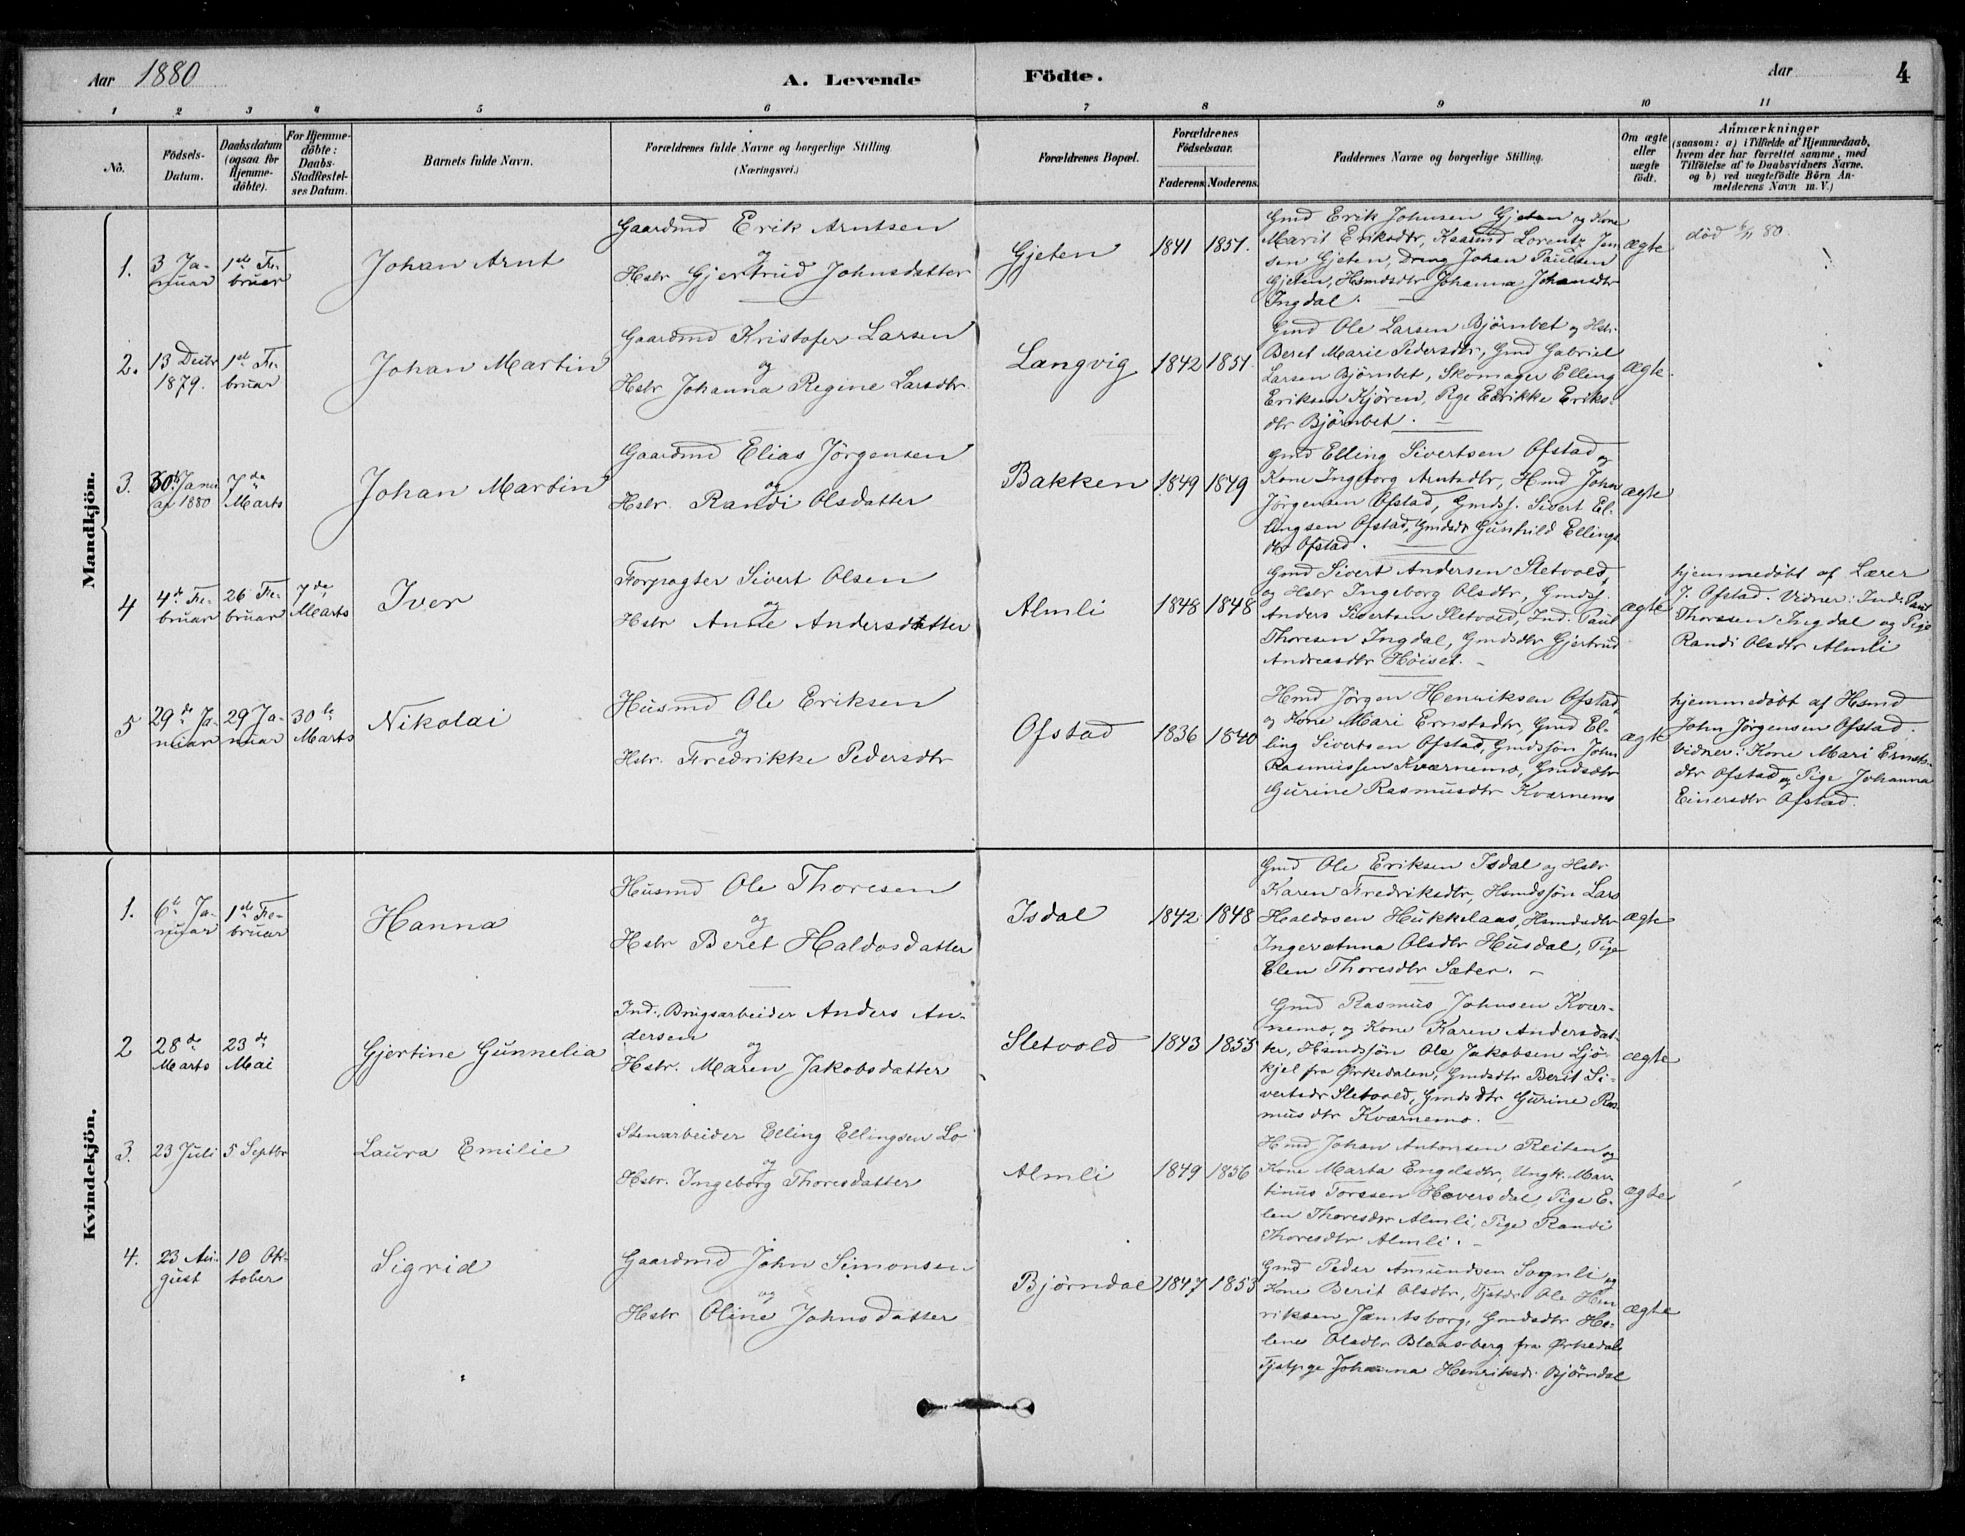 Aar 1880
A. Levende Födte.
Aar
4
1 2 3 4 5 6 7 8 9 10 11
No.
Födsels-
Datum.
Daabsdatum
(ogsaa for
Hjemme-
döbte).
For Hjemme-
döbte:
Daabs-
Stadfæstel-
ses Datum.
Barnets fulde Navn.
Forældrenes fulde Navne og borgerlige Stilling
(Næringsvei.)
Forældrenes Bopæl.
Forældrenes
Födselsaar.
Faderens Moderens.
Faddernes Navne og borgerlige Stilling.
Om ægte
eller
uægte
födt.
Anmærkninger
(saasom: a) i Tilfælde af Hjemmedaab,
hvem der har forrettet samme, med
Tilföielse af to Daabsvidners Navne,
og b) ved uægtefödte Börn An-
melderens Navn m. V.)
Mandkjön.
1.
3 Ja-
nuar
1ste Fe-
bruar
Johan Arnt
Gaardmd Erik Arntsen
og
Hstr Gjertrud Johnsdatter
Gjeten
1841 1851.
Gmd Erik Johnsen Gjeten og Kone
Marit Eriksdtr, Kaarmd Lorentz Jen-
sen Gjeten, Dreng Johan Paulsen
Gjeten, Hsmdsdtr Johanna Johansdtr
Ingdal.
ægte
død 6/11 80.
2.
13 Decbr
1879.
1ste Fe-
bruar
Johan Martin
Gaardmd Kristofer Larsen
og
Hstr Johanna Regine Larsdtr.
Langvig
1842 1851.
Gmd Ole Larsen Bjørnbet og Hstr.
Beret Marie Pedersdtr, Gmd Gabriel
Larsen Bjørnbet, Skomager Elling
Eriksen Kjören, Pige Edrikke Eriks-
dtr Bjørnbet.
ægte.
3.
30te Janu
ar 1880
7de
Marts
Johan Martin
Gaardmd Elias Jörgensen
og
Hstr. Randi Olsdatter
Bakken
1849 1849
Gmd Elling Sivertsen Ofstad og
Kone Ingeborg Arntsdtr, Hmd John
Jörgensen Ofstad, Gmdss. Sivert El-
lingsen Ofstad, Gmdsdtr Gunhild Ellings
dtr Ofstad.
ægte
4
4de Fe-
bruar
26 Fe-
bruar
7de
Marts
Iver
Forpagter Sivert Olsen
og
Hstr Anne Andersdatter
Almli
1848 1848
Gmd Sivert Andersen Sletvold,
og Hstr Ingeborg Olsdtr, Gmdss.
Anders Sivertsen Sletvold, Ind. Paul
Thoresen Ingdal, Gmdsdtr Gjertrud
Andreasdtr Höiset.
ægte
hjemmedöbt af Lærer
J. Ofstad. Vidner: Ind. Paul
Thoresen Ingdal og Pige
Randi Olsdtr Almli
5
29de Ja-
nuar
29 Ja-
nuar
30te
Marts
Nikolai
Husmd Ole Eriksen
og
Hstr. Fredrikke Pedersdtr
Ofstad
1836 1840
Hmd Jörgen Henriksen Ofstad,
og Kone Mari Ernstsdtr, Gmd El-
ling Sivertsen Ofstad, Gmdssön John
Rasmussen Kværnemo, Gmdsdtr
Gurine Rasmusdtr Kværnemo
ægte
hjemmedöbt af Hsmd
John Jörgensen Ofstad.
Vidner: Kone Mari Ernsts-
dtr Ofstad og Pige Johanna
Einersdtr Ofstad.
Kvindekjön.
1.
6te Ja-
nuar
1ste Fe-
bruar
Hanna
Husmd Ole Thoresen
og
Hstr Beret Haldosdatter
Isdal
1842 1848
Gmd Ole Eriksen Isdal og Hstr
Karen Fredriksdtr, Hsmdssön Lars
Haldosen Hukkelaas, Hsmdsdtr
Ingeranna Olsdtr Husdal, Pige
Elen Thoresdtr Sæter.
ægte
2
28de
Marts
23de
Mai
Gjertine Gunnelia
Ind., Brugsarbeider Anders An-
dersen
og
Hstr. Maren Jakobsdatter
Sletvold
1843 1853
Gmd Rasmus Johnsen Kvær-
nemo, og Kone Karen Andersdat-
ter, Hsmdssön Ole Jakobsen Ljö-
kjel fra Ørkedalen, Gmdsdtr Berit Si-
vertsdr Sletvold, Gmdsdtr Gurine Ras
mus dtr Kværnemo.
ægte
3.
23 Juli
5 Septbr
Laura Emilie
Stenarbeider Elling Ellingsen Lo
og
Hstr. Ingeborg Thoresdatter
Almli
1849 1856
Hmd Johan Antonsen Reiten og
Kone Marta Engelsdtr, Ungk. Mar-
tinus Torssen Heversdal, Pige E-
len Thoresdtr Almli, Pige Randi
Thoresdtr Almli.
ægte
4.
23 Au-
gust
10 Ok-
tober
Sigrid
Gaardmd John Simonsen
og
Hstr Oline Johnsdatter
Bjørndal
1847 1853
Gmd Peder Amundsen Sognli og
Kone Berit Olsdtr, Tjstdr Ole Hen
riksen Jamtsborg, Gmdsdtr He-
lene Olsdtr Blaasberg fra Ørkedal
Tjstpge Johanna Henriksdr Bjørndal
ægte